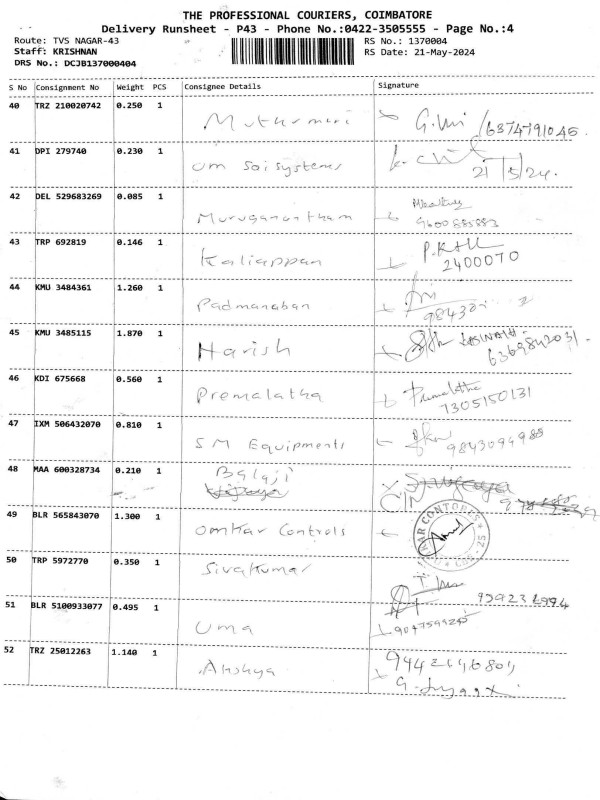 THE PROFESSIONAL COURIERS, COIMBATORE
Delivery Runsheet - P43 - Phone No.:0422-3505555 - Page No.:4
Route: TVS NAGAR-43 RS No.: 1370004
Staff: KRISHNAN RS Date: 21-May-2024
DRS No.: DCJB137000404
S No Consignment No Weight PCS Consignee Details Signature
40 TRZ 210020742 0.250 1
6374791045
41 DPI 279740 0.230 1 om Sai systems
21/5/24.
42 DEL 529683269 0.085 1 Muruganantham
9600885883
43 TRP 692819 0.146 1 Kaliappan
2400070
44 KMU 3484361 1.260 1 Padmanaban
45 KMU 3485115 1.870 1 Harish
6369842031.
46 KDI 675668 0.560 1 Premalatha Premalatha
7305150131
47 IXM 506432070 0.810 1 SM Equipments
9843099985
48 MAA 600328734 0.210 1 Balaji
49 BLR 565843070 1.300 1 Omkar Controls
50 TRP 5972770 0.350 1 Sivakumar
51 BLR 5100933077 0.495 1 Uma
52 TRZ 25012263 1.140 1 Akshya